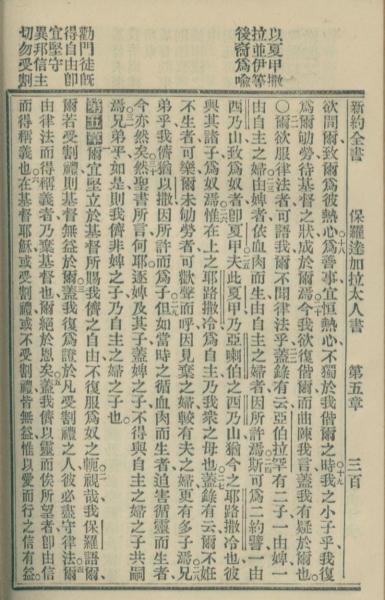 新約全書 保羅達加拉太人書 第五章 三百
以夏甲撒
拉並伊等
後裔爲喻
欲間爾致爾爲彼熱心爲善事宜恒熱心不獨於我偕爾之時我之小子乎我復
爲爾劬勞待基督之狀成於爾焉今我欲復偕爾而曲陳我言蓋我有疑於爾也
○爾欲服律法者可語我爾不聞律法乎蓋錄有云亞伯拉罕有二子一由婢一
由自主之婦由婢者依血肉而生由自主之婦者因所許焉斯可爲二約譬一由
西乃山致爲奴者卽夏甲夫此夏甲乃亞喇伯之西乃山猶今之耶路撒冷也彼
與其諸子爲奴焉惟在上之耶路撒冷爲自主乃我衆之母也蓋錄有云爾不姙
不生者可樂爾未劬勞者可歡聲而呼因見棄之婦較有夫之婦更有多子焉兄
弟乎我儕猶以撒因所許而爲子但如當時之循血肉而生者迫害循靈而生者
今亦然矣然聖書所言何耶逐婢及其子蓋婢之子不得與自主之婦之子共嗣
焉兄弟乎如是則我儕非婢之子乃自主之婦之子也
勸門徒旣
得自由卽
宜堅守
異邦信主
切勿受割
第五章爾宜堅立於基督所賜我儕之自由不復服爲奴之軛視哉我保羅語爾
爾若受割禮則基督無益於爾蓋我復爲證於凡受割禮之人彼必盡守律法爾
由律法而得稱義者乃棄基督也爾絕於恩矣蓋我儕以靈而俟所望者卽由信
而得稱義也在基督耶穌或受割禮或不受割禮皆無益惟以愛而行之信有益